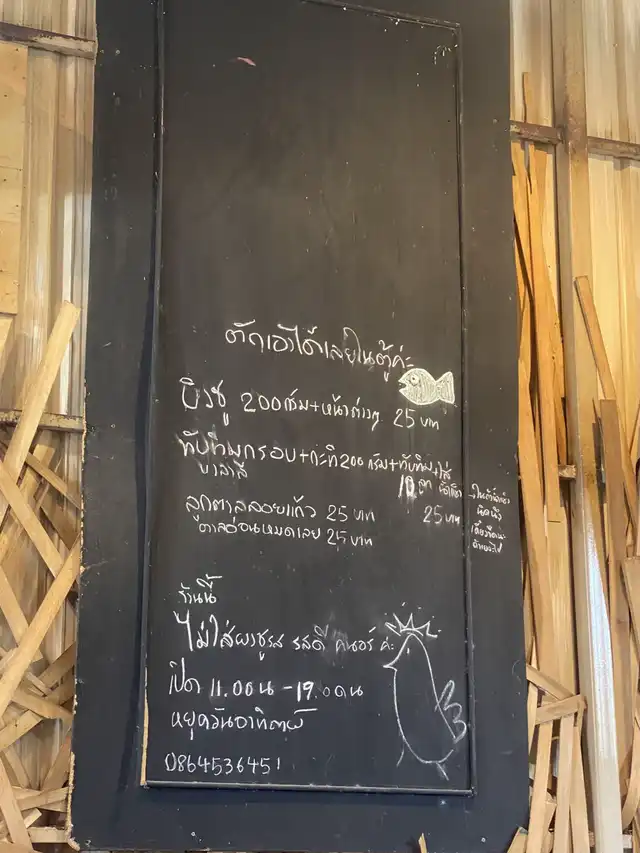 ตักเอาได้เลยในตู้ค่ะ
บิงซู 200 กรัม+หน้าต่างๆ 25 บาท
ทับทิมกรอบ+กะทิ 200 กรัม+ทับทิม+ไส้
10 ลูก
ลูกตาลลอยแก้ว 25 บาท 25 บาท
ตาลอ่อนหมดเลย 25 บาท
ร้านนี้
ไม่ใส่ผงชูรส รสดี คนอร์ ค่ะ
เปิด 11.00 น - 19.00 น
หยุดวันอาทิตย์
0864536451